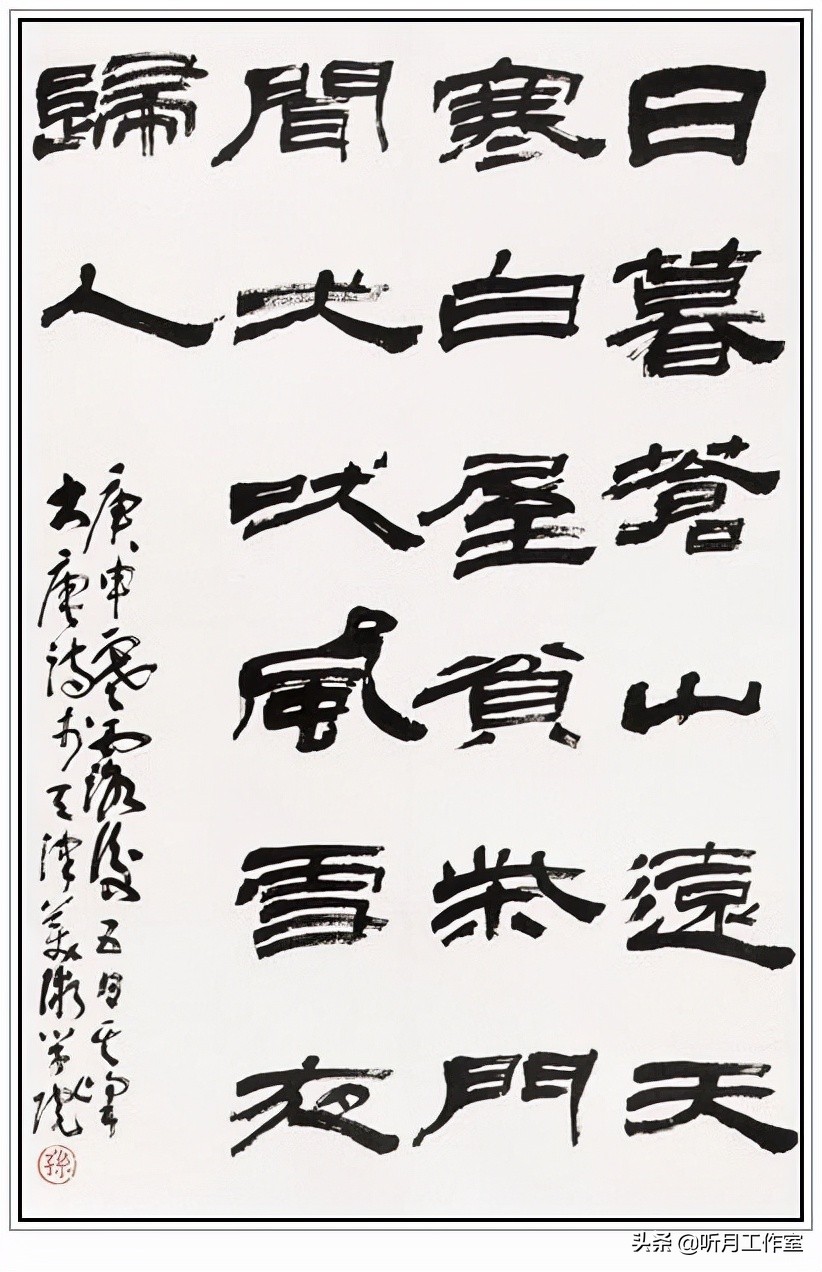 日暮蒼山遠天
寒白屋貧柴門
聞犬吠風雪夜
歸人
庚申寒露後五日其峯
唐詩於天津美術學院
孫
头条 @听月工作室